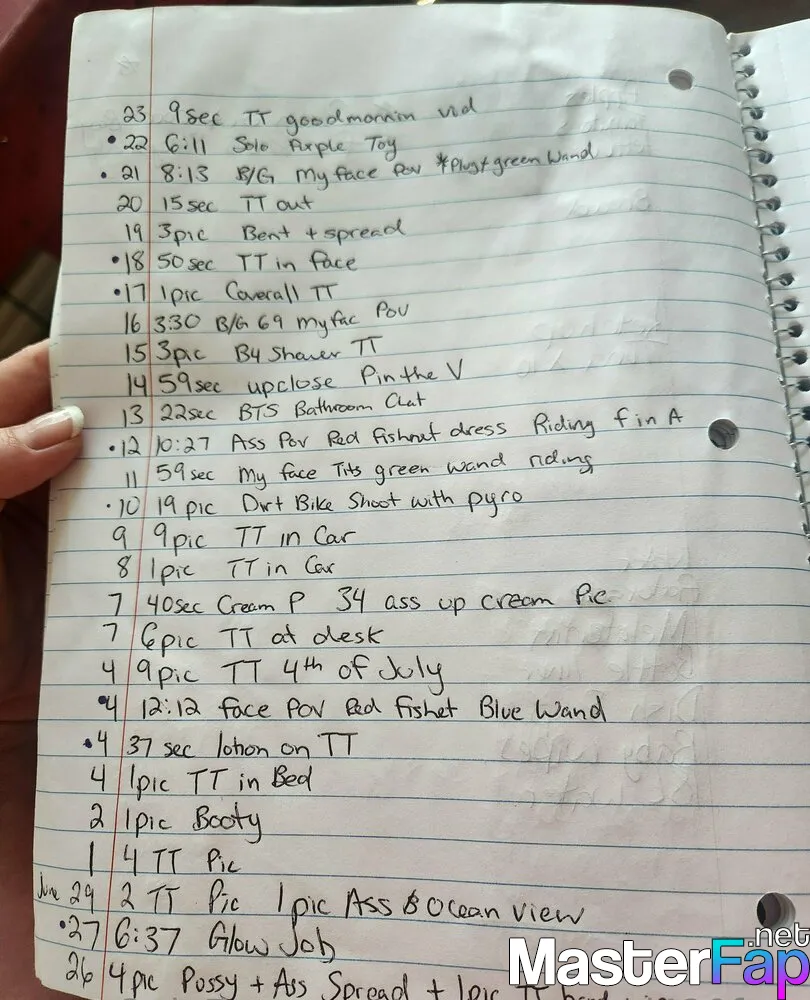 23 9sec TT goodmornin vid
• 22 6:11 Solo Purple Toy
• 21 8:13 B/G My face Pov *Plug + green Wand
20 15sec TT out
19 3pic Bent + spread
• 18 50sec TT in face
• 17 1pic Coverall TT
16 3:30 B/G 69 my fac Pov
15 3pic B4 Shower TT
14 59sec upclose P in the V
13 22sec BTS Bathroom Chat
• 12 10:27 Ass Pov Red fishnet dress Riding f in A
11 59sec My face Tits green wand riding
• 10 19 pic Dirt Bike Shoot with pyro
9 9pic TT in Car
8 1pic TT in Car
7 40sec Cream P 34 ass up cream Pic
7 6pic TT at desk
4 9pic TT 4th of July
• 4 12:12 face POV Red fishet Blue Wand
• 4 37 sec lotion on TT
4 1pic TT in Bed
2 1pic Booty
1 4 TT Pic
June 29 2 TT Pic 1pic Ass & Ocean view
• 27 6:37 Glow Job
26 4pic Pussy + Ass Spread + 1pic TT
MasterFap.net